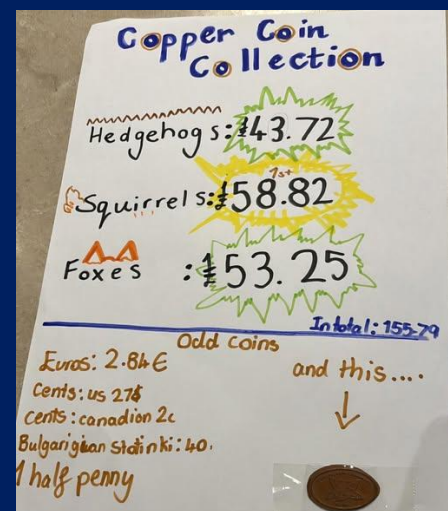 Copper Coin
Collection
Hedgehogs: £43.72
1st
Squirrels: £58.82
Foxes : £53.25
In total: 155.79
Odd coins
Euros: 2.84€
and this....
Cents: us 27$
Cents: canadion 2c
Bulgarigian Stotinki: 40.
1 half penny